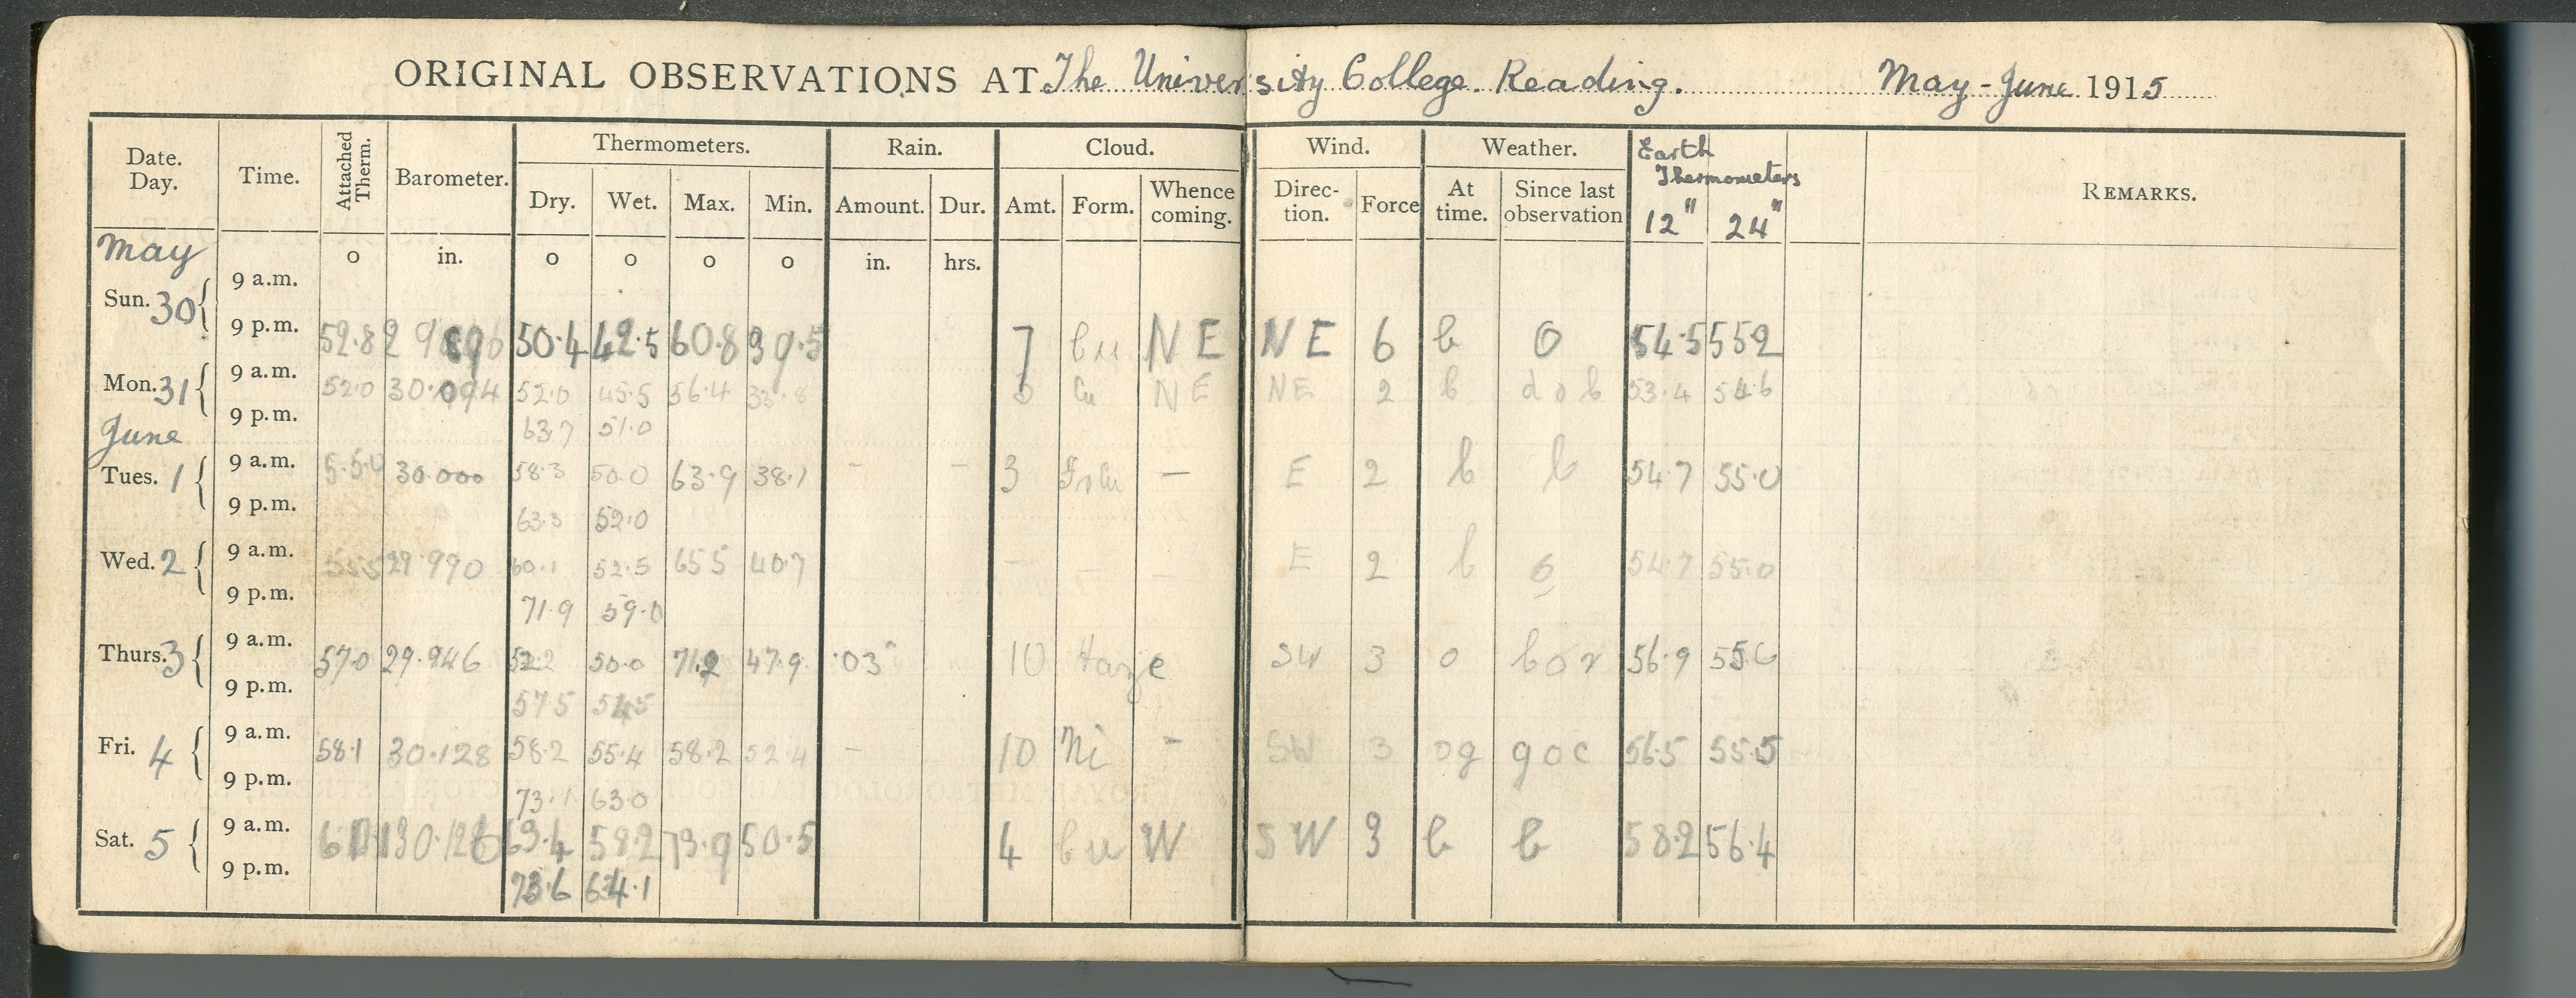 ORIGINAL OBSERVATIONS AT The University College. Reading. May - June 1915
Date. Day. Time. Attached Therm. Barometer. Thermometers. Rain. Cloud. Wind. Weather. Earth Thermometers REMARKS.
Dry. Wet. Max. Min. Amount. Dur. Amt. Form. Whence coming. Direc- tion. Force At time. Since last observation 12" 24"
May o in. o o o o in. hrs.
Sun. 30 9 a.m.
9 p.m. 52.8 50.4 42.5 60.8 39.5 7 Cu NE NE 6 b o 54.5 552
Mon. 31 9 a.m. 52.0 30.094 52.0 45.5 56.4 Cu NE NE 2 b d o b 53.4 54.6
9 p.m. 63.7 51.0
June
Tues. 1 9 a.m. 5.5.0 30.000 58.3 50.0 63.9 38.1 - - 3 — E 2 b b 54.7 55.0
9 p.m. 63.3 52.0
Wed. 2 9 a.m. 29.990 60.1 52.5 65 5 40.7 - - - E 2 b 54.7 55.0
9 p.m. 71.9 59.0
Thurs. 3 9 a.m. 57.0 29.946 50.0 71.2 47.9 .03 10 Haze SW 3 o b o r 56.9
9 p.m. 57.5 54.5
Fri. 4 9 a.m. 58.1 30.128 58.2 55.4 58.2 52.4 - 10 Ni - SW 3 og g o c 56.5 55.5
9 p.m. 73.1 63.0
Sat. 5 9 a.m. 63.4 58.2 73.9 50.5 4 Cu W SW 3 b b 58.2 56.4
9 p.m. 73.6 64.1